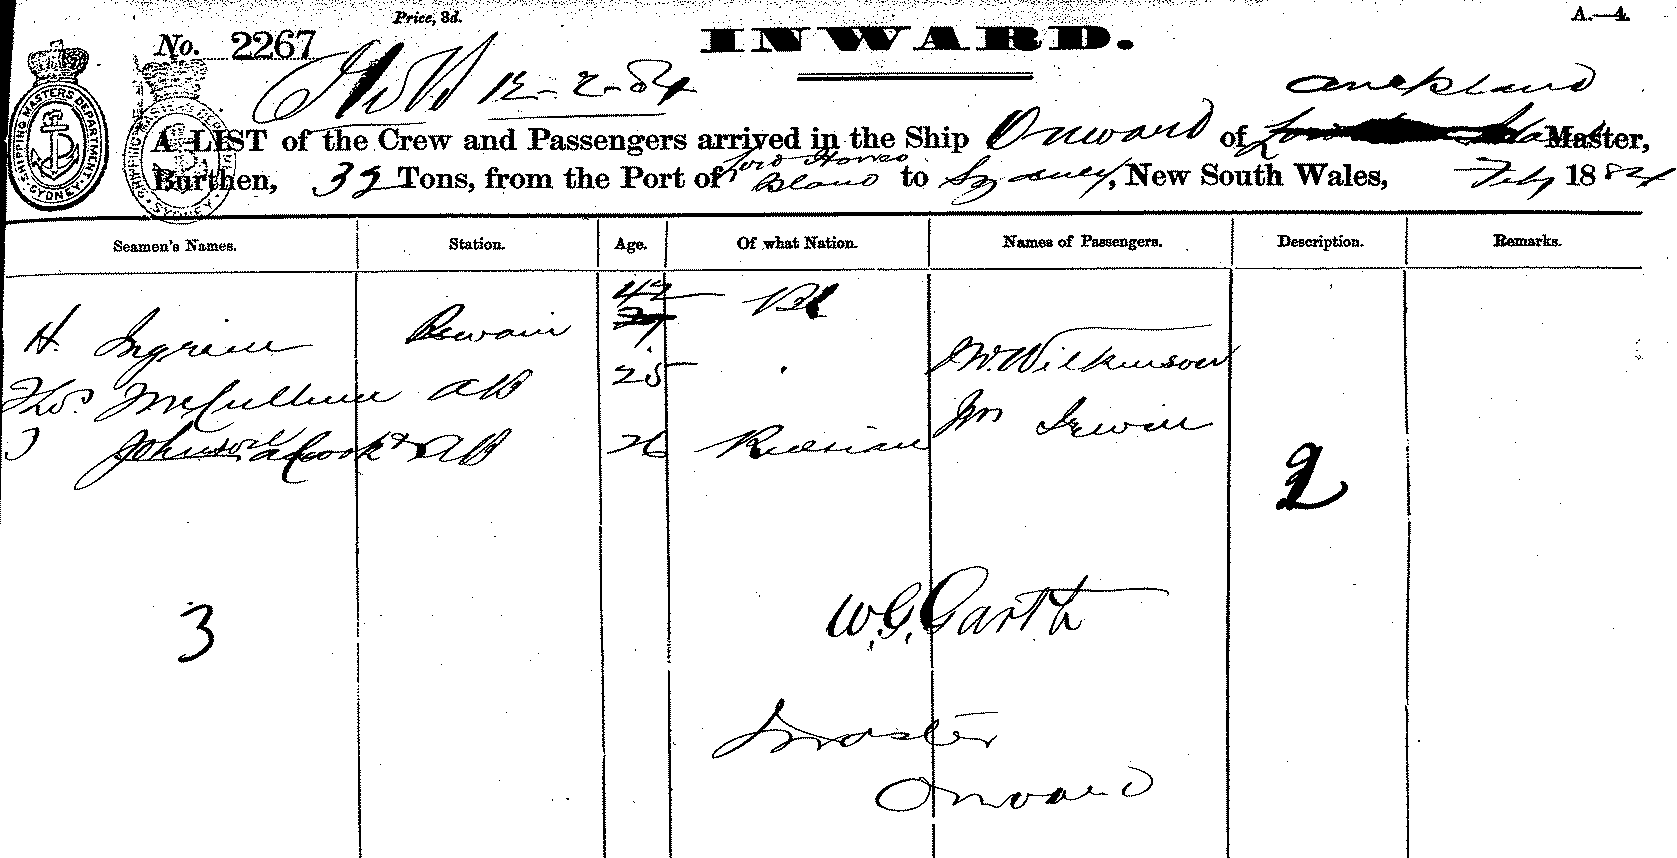 Price, 3d.
A.—4.
No. 2267
INWARD.
12-2-84
Auckland
A LIST of the Crew and Passengers arrived in the Ship Onward of Master,
Burthen, Tons, from the Port of Lord Howe Island to Sydney, New South Wales, Feby 1884
SHIPPING MASTERS DEPARTMENT SYDNEY
Seamen's Names. Station. Age. Of what Nation. Names of Passengers. Description. Remarks.
42
H. Ingram
25 J W. Wilkinson
Thos McCullum AB
Wm Irwin
Johnson AB 26 Russian
2
3
W. G. Garth
Master
Onward